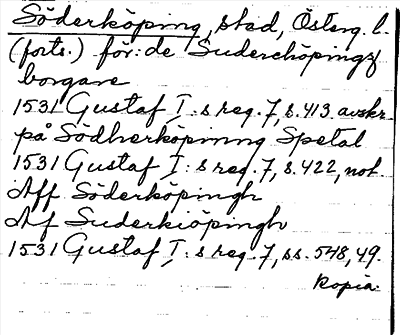 Söderköping, stad, Österg. l.
(forts.) för: de Suderchöpingz
borgare
1531 Gustaf I:s reg. 7, s. 413 avskr.
på Södherköpinng Spetal
1531 Gustaf I:s reg. 7, s. 422, not.
Aff Söderköpingh
Af Suderkiöpingh
1531 Gustaf I:s reg. 7, ss. 548, 49.
kopia.